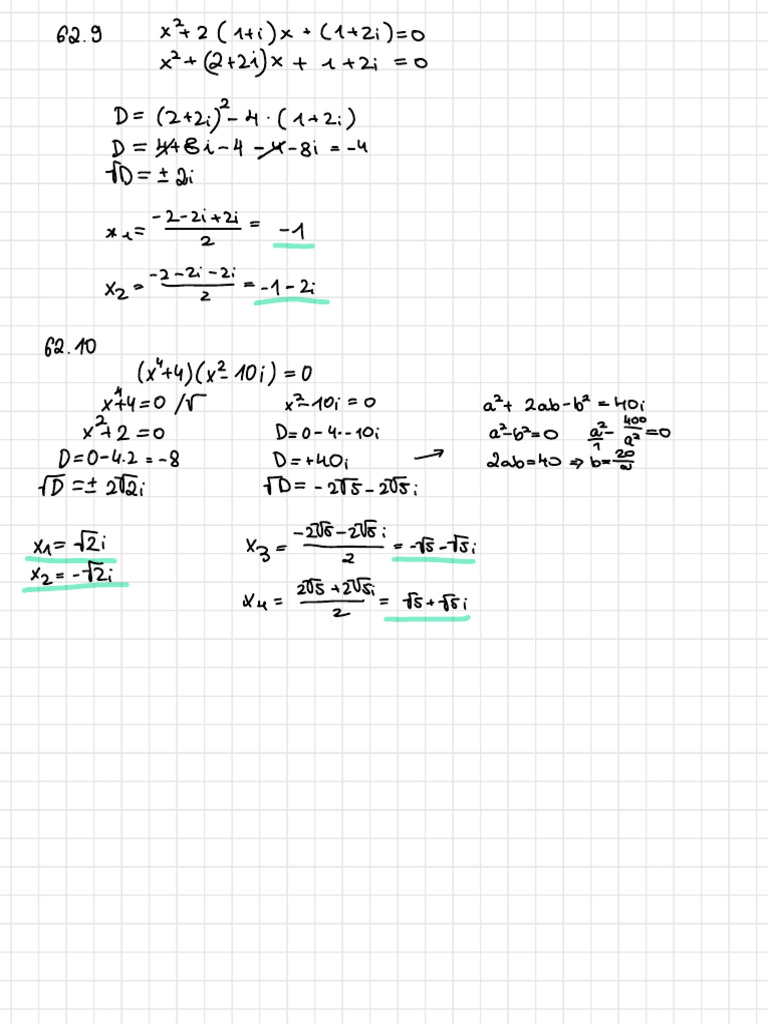 62.9 x²+2(1+i)x+(1+2i)=0
x²+(2+2i)x+1+2i=0
D=(2+2i)²-4·(1+2i)
D=4+8i-4-4-8i=-4
√D=±2i
x₁=(-2-2i+2i)/2=-1
x₂=(-2-2i-2i)/2=-1-2i
62.10
(x⁴+4)(x²-10i)=0
x⁴+4=0 /√
x²+2=0
D=0-4.2=-8
√D=±2√2i
x²-10i=0
D=0-4·-10i
D=+40i
√D=-2√5-2√5i
→
a²+2ab-b²=40i
a²-b²=0 a²/1-400/a²=0
2ab=40⇒b=20/a
x₁=√2i
x₂=-√2i
x₃=(-2√5-2√5i)/2=-√5-√5i
x₄=(2√5+2√5i)/2=√5+√5i